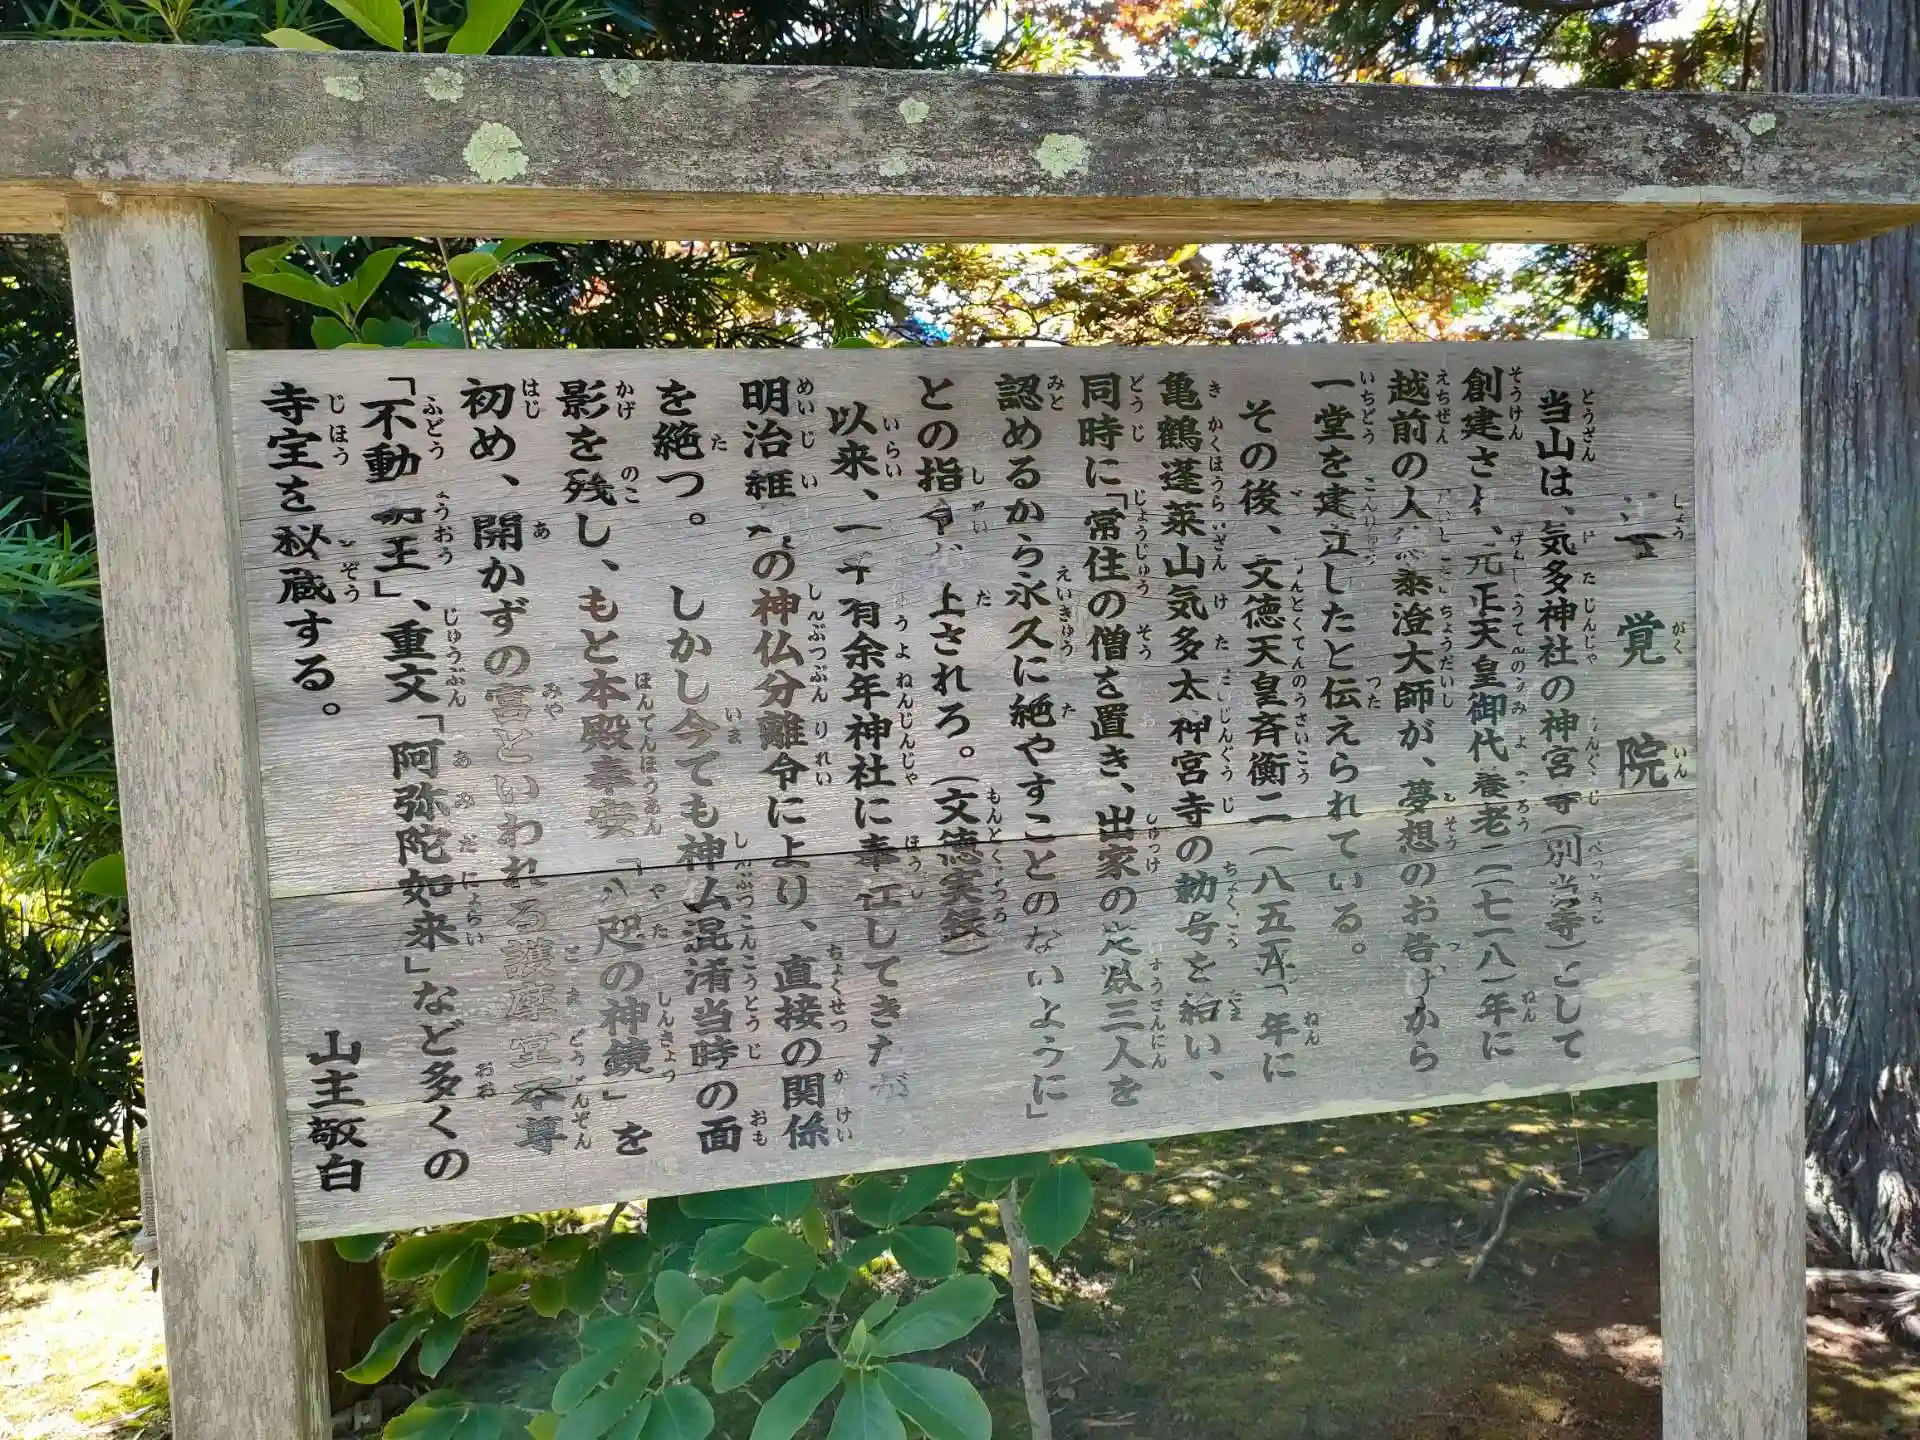 覚院
当山は、気多神社の神宮寺(別当寺)として
創建され、元正天皇御代養老二(七一八)年に
越前の人 泰澄大師が、夢想のお告げから
一堂を建立したと伝えられている。
その後、文徳天皇斉衡二(八五五)年に
亀鶴蓬莱山気多太神宮寺の勅号を給い、
同時に「常住の僧を置き、出家の 三人を
認めるから永久に絶やすことのないように」
との指令が 上される。(文徳実録)
以来、一千有余年神社に奉仕してきたが
明治維 の神仏分離令により、直接の関係
を絶つ。 しかし今でも神仏混淆当時の面
影を残し、もと本殿奉安「八咫の神鏡」を
初め、開かずの宮といわれる護摩堂本尊
「不動明王」、重文「阿弥陀如来」など多くの
寺宝を秘蔵する。
山主敬白